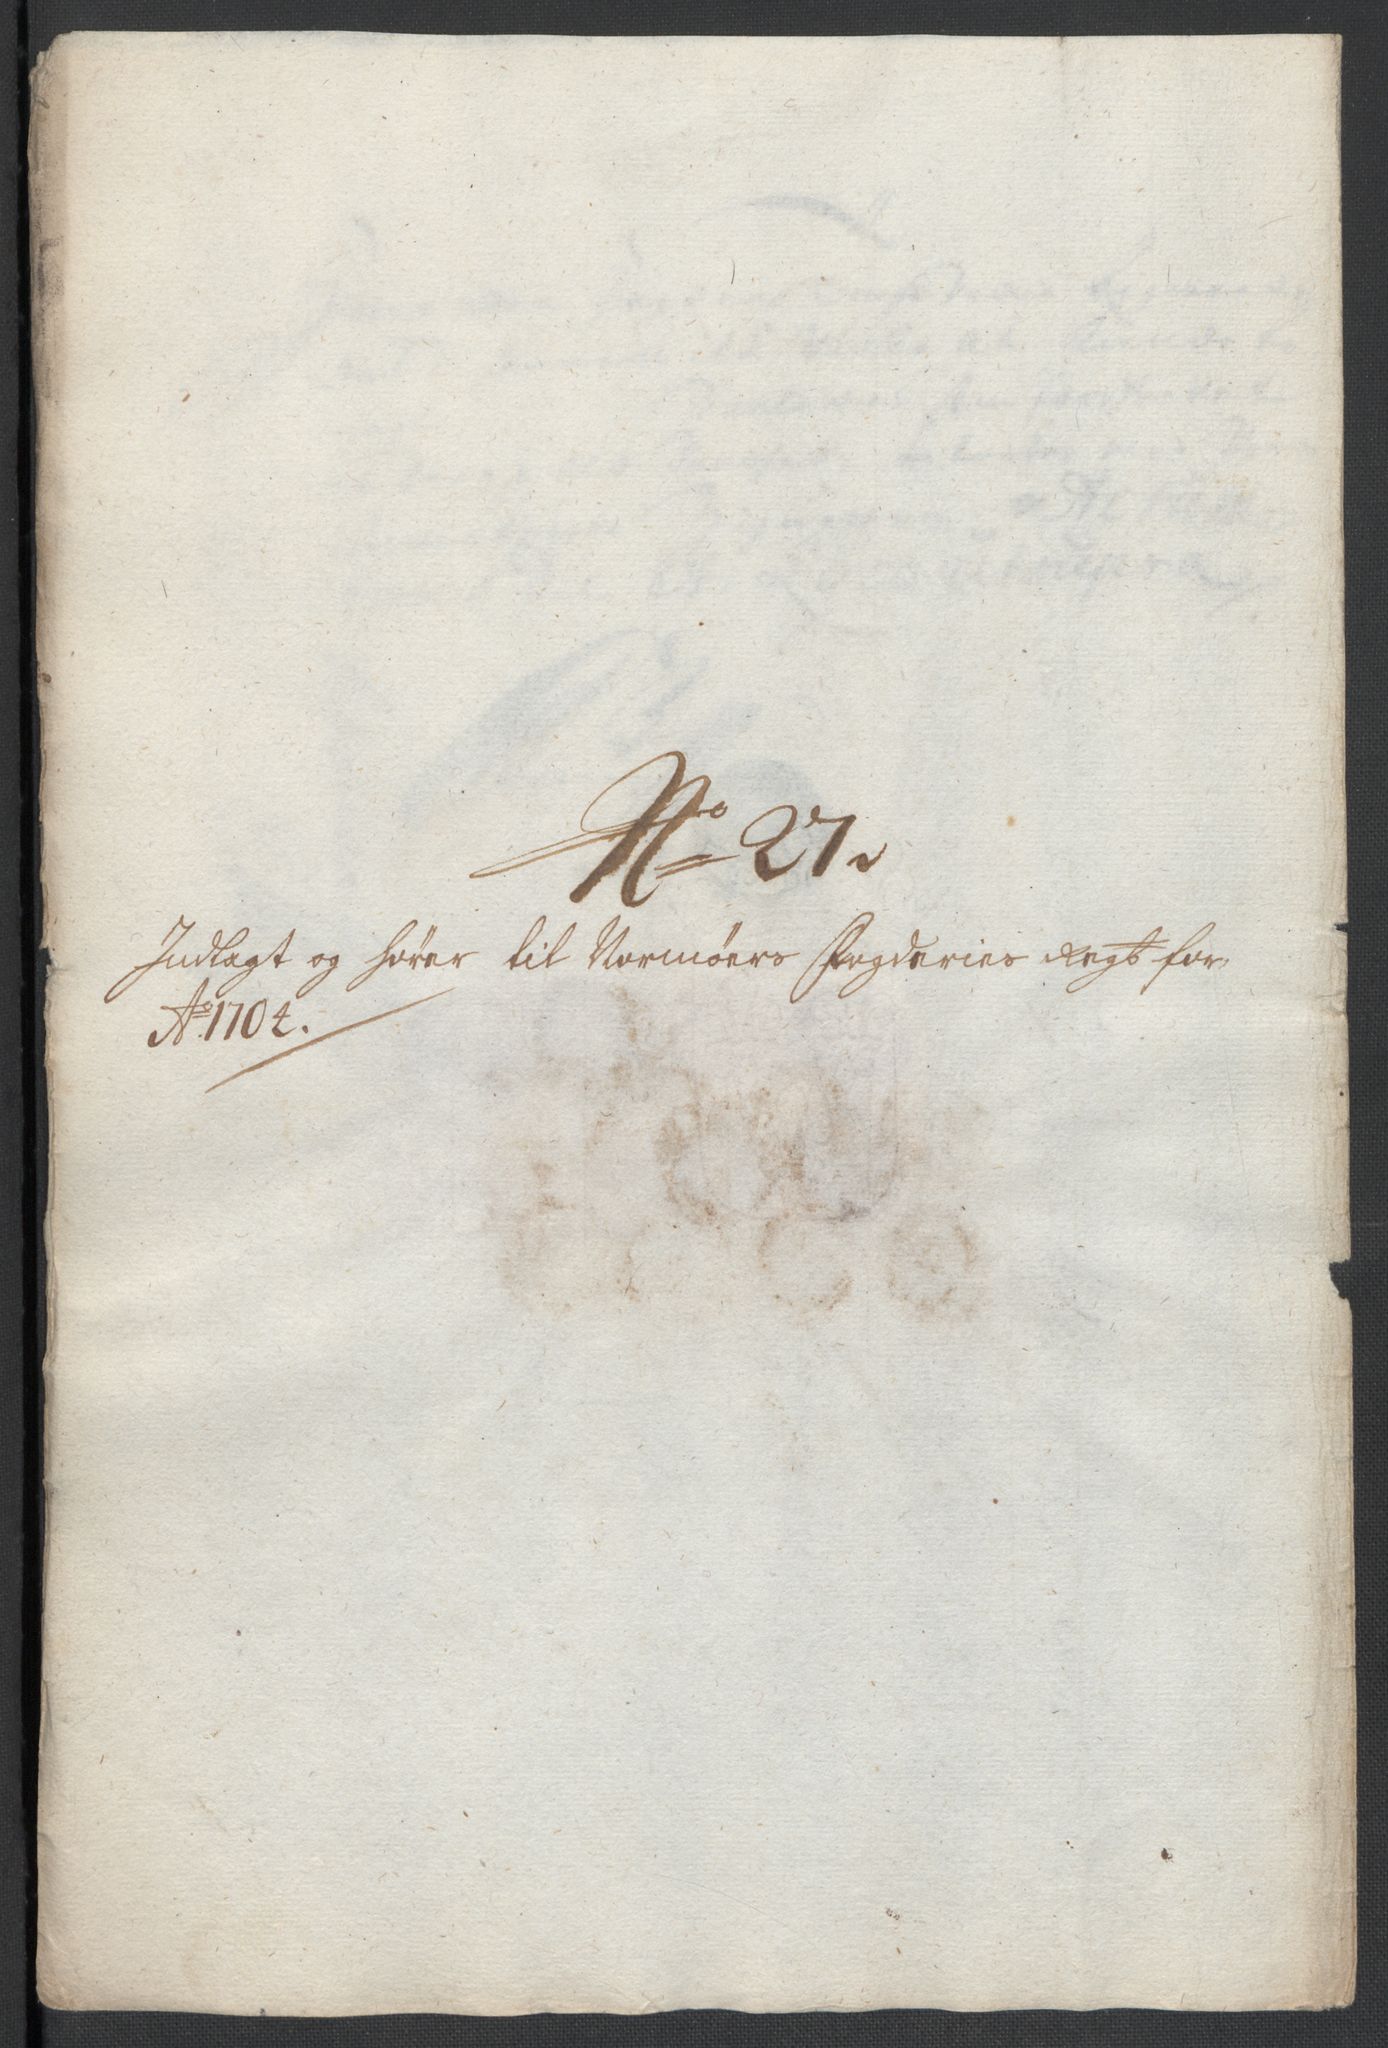 No 27.
Indlagt og hører til Normøers Fogderies Regb for
Ao 1704.